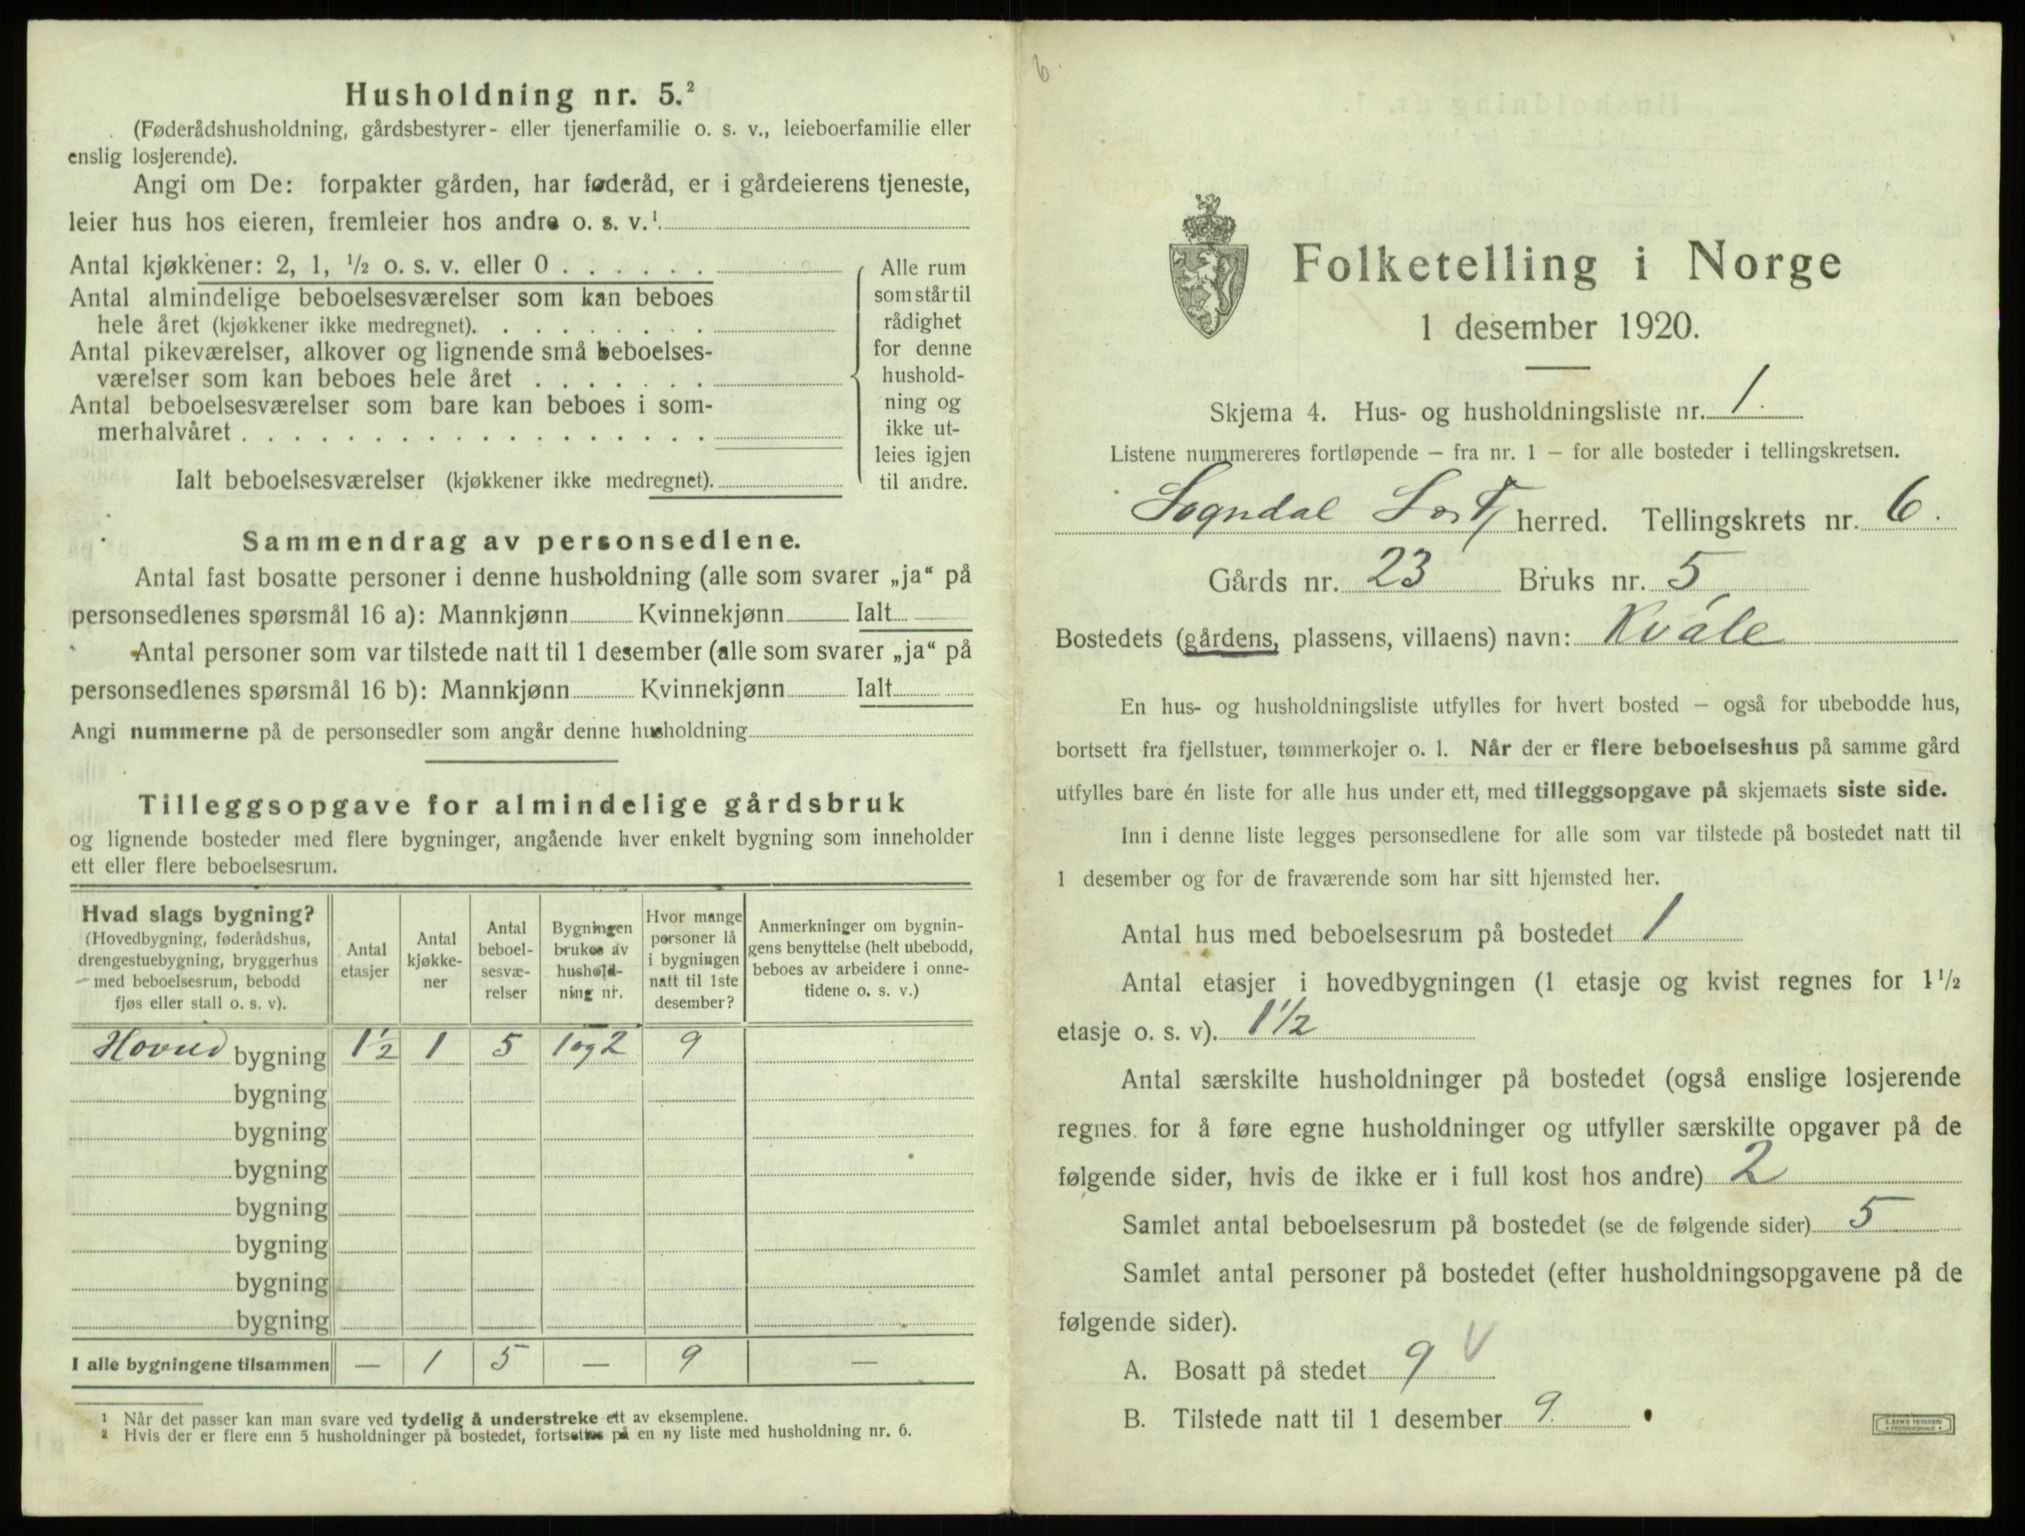 Husholdning nr. 5.²
(Føderådshusholdning, gårdsbestyrer- eller tjenerfamilie o. s. v., leieboerfamilie eller
enslig losjerende).
Angi om De: forpakter gården, har føderåd, er i gårdeierens tjeneste,
leier hus hos eieren, fremleier hos andre o. s. v.¹
Antal kjøkkener: 2, 1, ½ o. s. v. eller 0 . . . . . .
Antal almindelige beboelsesværelser som kan beboes
hele året (kjøkkener ikke medregnet). . . . . . . . . .
Antal pikeværelser, alkover og lignende små beboelses-
værelser som kan beboes hele året . . . . . . .
Antal beboelsesværelser som bare kan beboes i som-
merhalvåret . . . . . . . . . . . . . . . . . .
Ialt beboelsesværelser (kjøkkener ikke medregnet).
Alle rum
som står til
rådighet
for denne
hushold-
ning og
ikke ut-
leies igjen
til andre.
Sammendrag av personsedlene.
Antal fast bosatte personer i denne husholdning (alle som svarer „ja“ på
personsedlenes spørsmål 16 a): Mannkjønn Kvinnekjønn Ialt
Antal personer som var tilstede natt til 1 desember (alle som svarer „ja“ på
personsedlenes spørsmål 16 b): Mannkjønn Kvinnekjønn Ialt
Angi nummerne på de personsedler som angår denne husholdning
Tilleggsopgave for almindelige gårdsbruk
og lignende bosteder med flere bygninger, angående hver enkelt bygning som inneholder
ett eller flere beboelsesrum.
Hvad slags bygning?
(Hovedbygning, føderådshus,
drengestuebygning, bryggerhus
med beboelsesrum, bebodd
fjøs eller stall o. s. v).
Antal
etasjer
Antal
kjøkke-
ner
Antal
beboel-
sesvæ-
relser
Bygningen
brukes av
hushold-
ning nr.
Hvor mange
personer lå
i bygningen
natt til 1ste
desember?
Anmerkninger om bygnin-
gens benyttelse (helt ubebodd,
beboes av arbeidere i onne-
tidene o. s. v.)
Hoved bygning 1½ 1 5 1 og 2 9
bygning
bygning
bygning
bygning
bygning
bygning
bygning
I alle bygningene tilsammen — 1 5 — 9 —
1 Når det passer kan man svare ved tydelig å understreke ett av eksemplene.
2 Hvis der er flere enn 5 husholdninger på bostedet, fortsettes på en ny liste med husholdning nr. 6.
6.
Folketelling i Norge
1 desember 1920.
Skjema 4. Hus- og husholdningsliste nr. 1.
Listene nummereres fortløpende — fra nr. 1 — for alle bosteder i tellingskretsen.
Sogndal herred. Tellingskrets nr. 6.
Gårds nr. 23 Bruks nr. 5
Bostedets (gårdens, plassens, villaens) navn: Kvåle
En hus- og husholdningsliste utfylles for hvert bosted — også for ubebodde hus,
bortsett fra fjellstuer, tømmerkojer o. l. Når der er flere beboelseshus på samme gård
utfylles bare én liste for alle hus under ett, med tilleggsopgave på skjemaets siste side.
Inn i denne liste legges personsedlene for alle som var tilstede på bostedet natt til
1 desember og for de fraværende som har sitt hjemsted her.
Antal hus med beboelsesrum på bostedet 1
Antal etasjer i hovedbygningen (1 etasje og kvist regnes for 1½
etasje o. s. v). 1½
Antal særskilte husholdninger på bostedet (også enslige losjerende
regnes for å føre egne husholdninger og utfyller særskilte opgaver på de
følgende sider, hvis de ikke er i full kost hos andre) 2
Samlet antal beboelsesrum på bostedet (se de følgende sider) 5
Samlet antal personer på bostedet (efter husholdningsopgavene på de
følgende sider).
A. Bosatt på stedet 9 V
B. Tilstede natt til 1 desember 9.